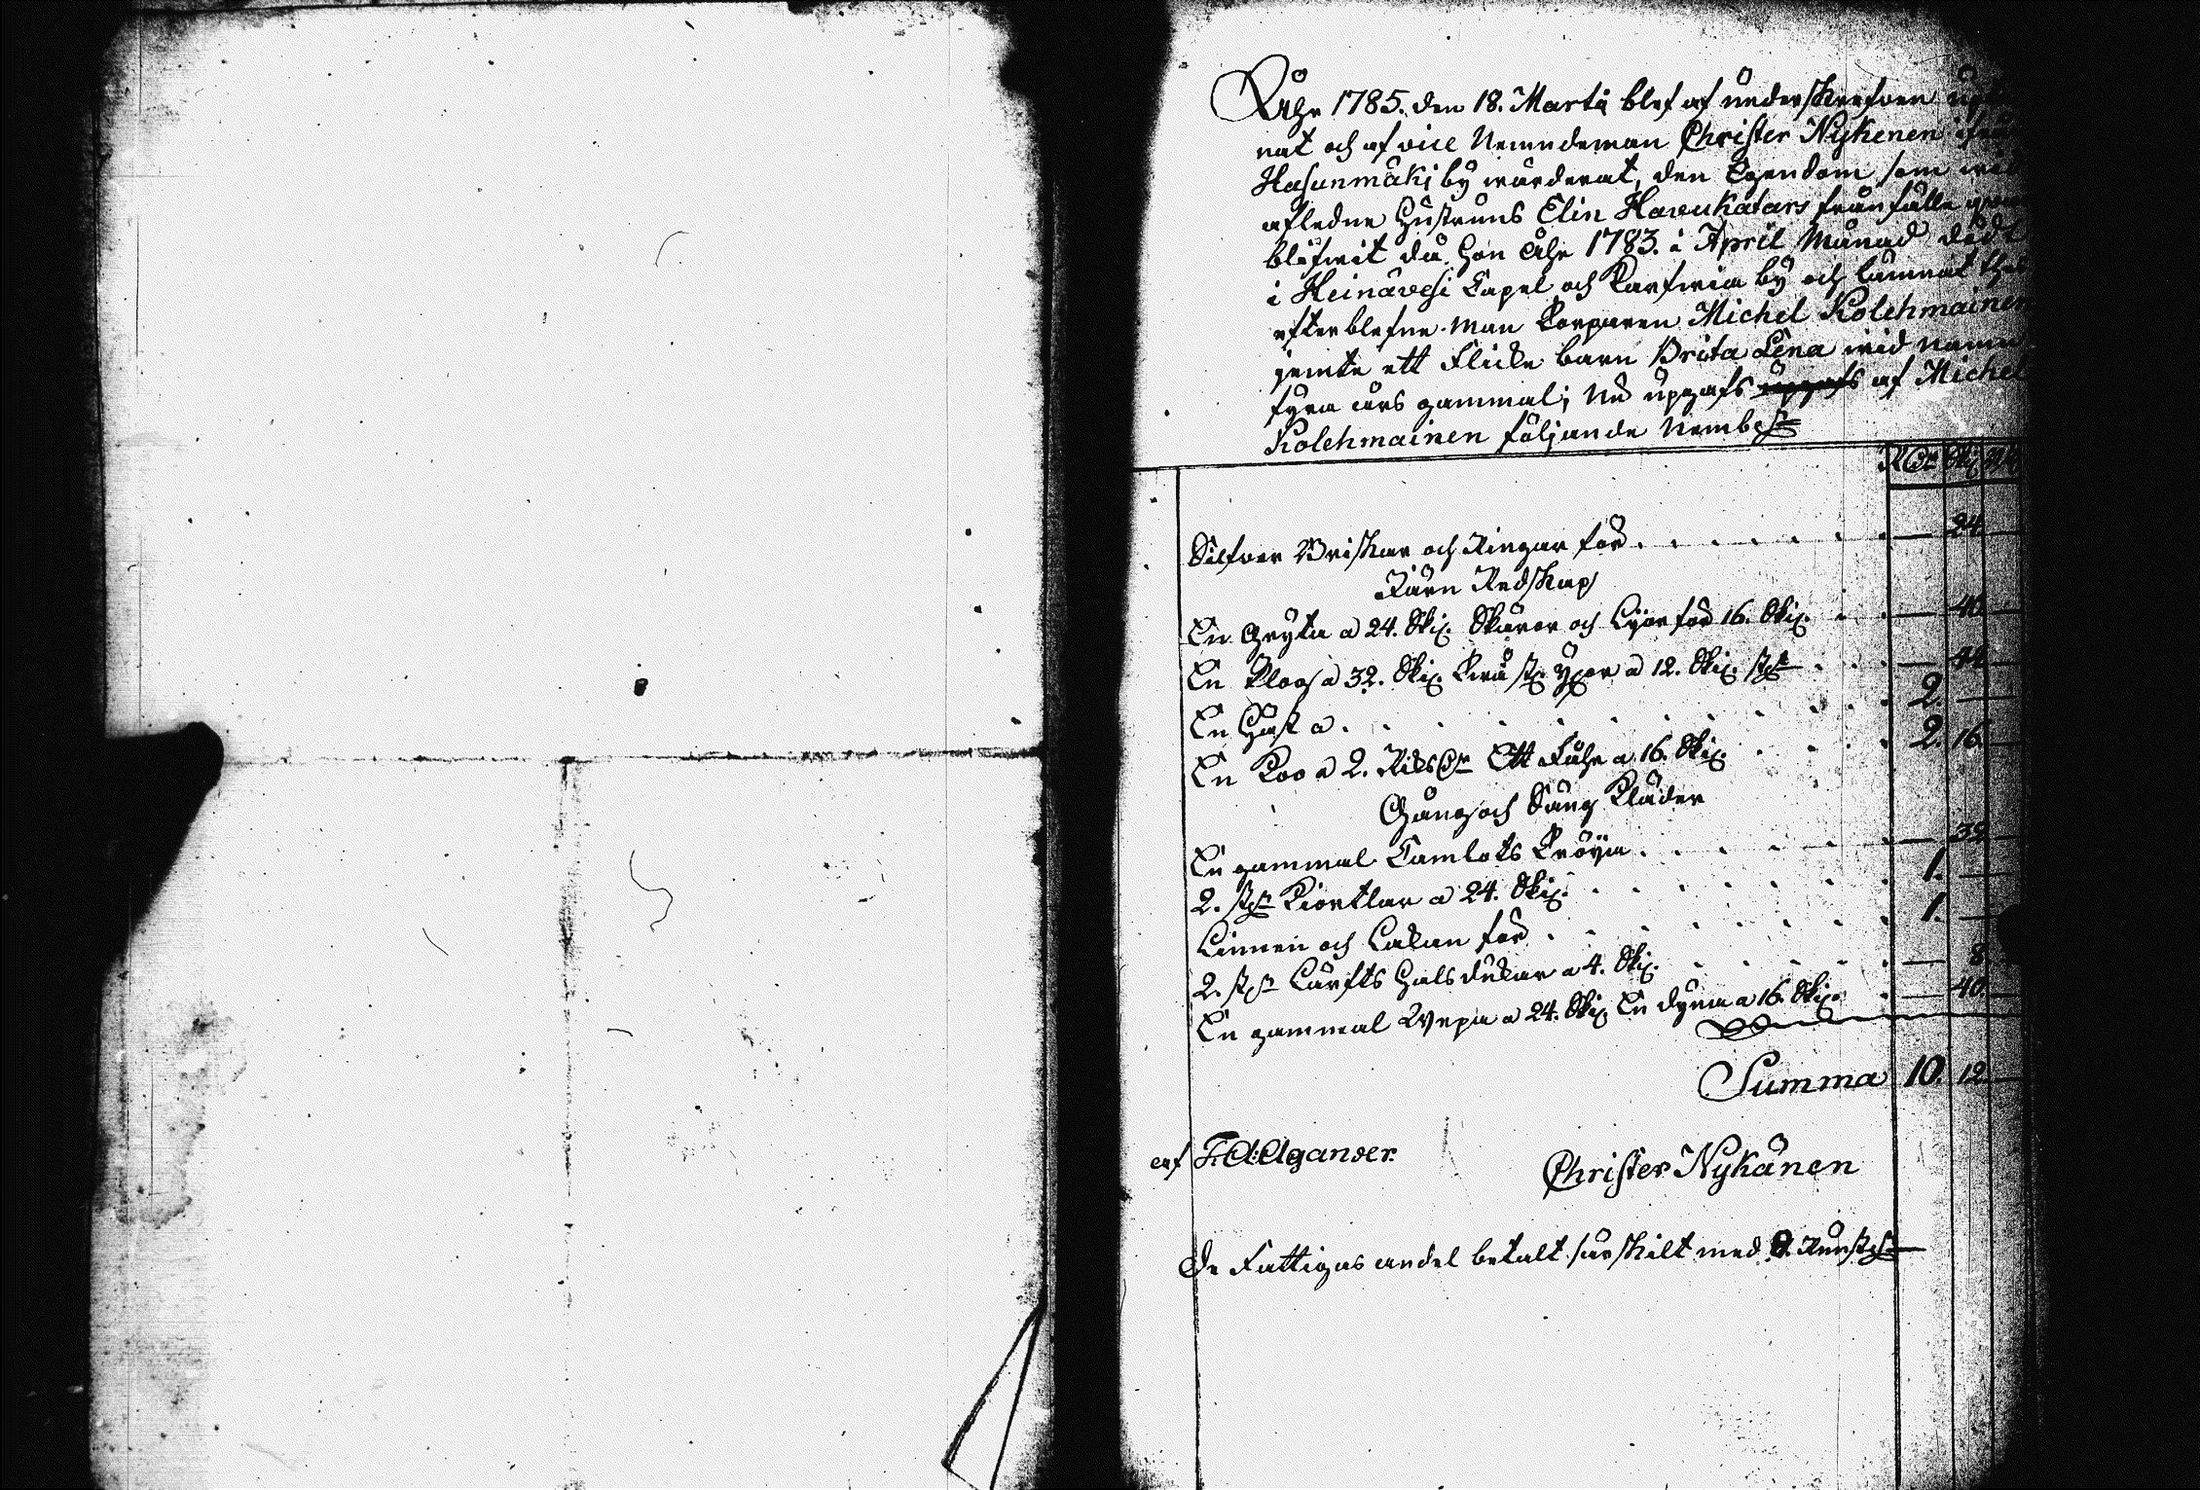 Åhr 1785. den 18. Martij blef af underskrefven upteck
nat och af vice Nemndeman Christer Nykenen ifrån
Hasunmäki by wärderat, den Egendom som wid
afledne Hustruns Elin Havukatars frånfälle qvar
blifwit då hon Åhr 1783. i April Månad dödt
i Heinävesi Capel och Karfwia by och lämnat
efterblefne Man Torparen Michel Kolehmainen
jemte ett Flicke barn Brita Lena wid namn
fyra års gammal; Nu upgafs upgafs af Michel
Kolehmainen följande Nembl:n
R:Dr Sk:
Silfver Briskar och Ringar för . . . . . . — 24.
Järn Redskap
En Gryta a 24. Sk: Skäror och Lijor för 16. Sk: . . — 40.
En Plog a 32. Sk: Twå st: yxor a 12. Sk: st:k . . . — 
En Häst a . . . . . . . . . . 2. —
En Koo a 2. RiksD:r Ett Fåhr a 16. Sk: . . . . 2. 16.
Gång och Säng Kläder
En gammal Camlots Tröija . . . . . — 32.
2. st:n Kiortlar a 24. Sk: . . . . . . 1. —
Linnen och Lakan för . . . . . . . 1. —
2. st:n Lärfts Halsdukar a 4. Sk: . . . . . — 8.
En gammal Wepa a 24. Sk: En dyna a 16. Sk: . — 40.
Summa 10. 12.
af F: A: Agander.
Christer Nykänen
De Fattigas andel betalt särskilt med 8. Runst:n